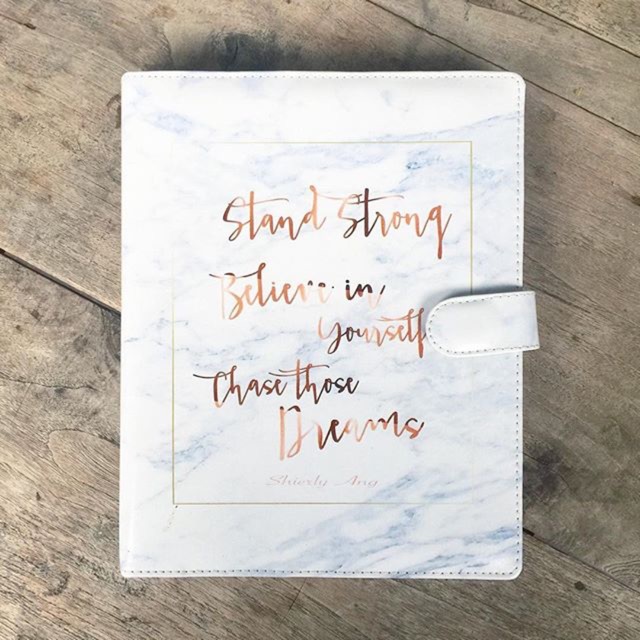 Stand Strong
Believe in
Yourself
Chase those
Dreams
Shierly Ang